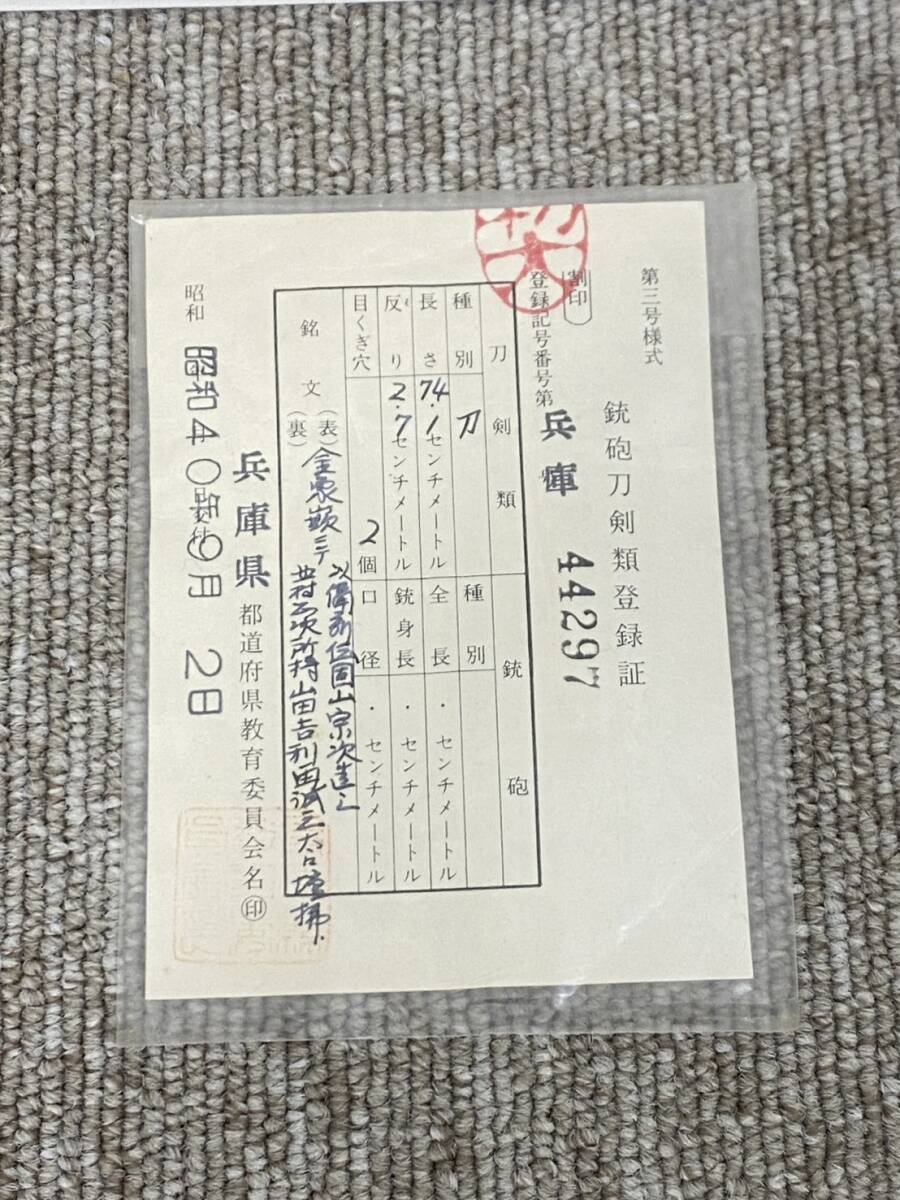 第三号様式
銃砲刀剣類登録証
割印
登録記号番号第
兵庫 44297
刀剣類
種別 刀
長さ 74.1センチメートル
反り 2.7センチメートル
目くぎ穴 2個
銘文
(表) 金象嵌ニテ
以備前伝固山宗次造之
(裏)
所持山田吉利
銃砲
種別
全長 ・センチメートル
銃身長 ・センチメートル
口径 ・センチメートル
昭和
昭和40年9月2日
交付
兵庫県
都道府県教育委員会名㊞